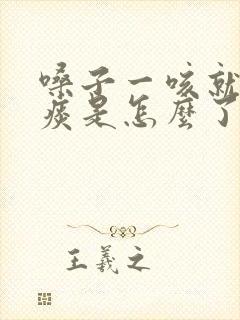 嗓子一咳就
痰是怎麼了
王羲之